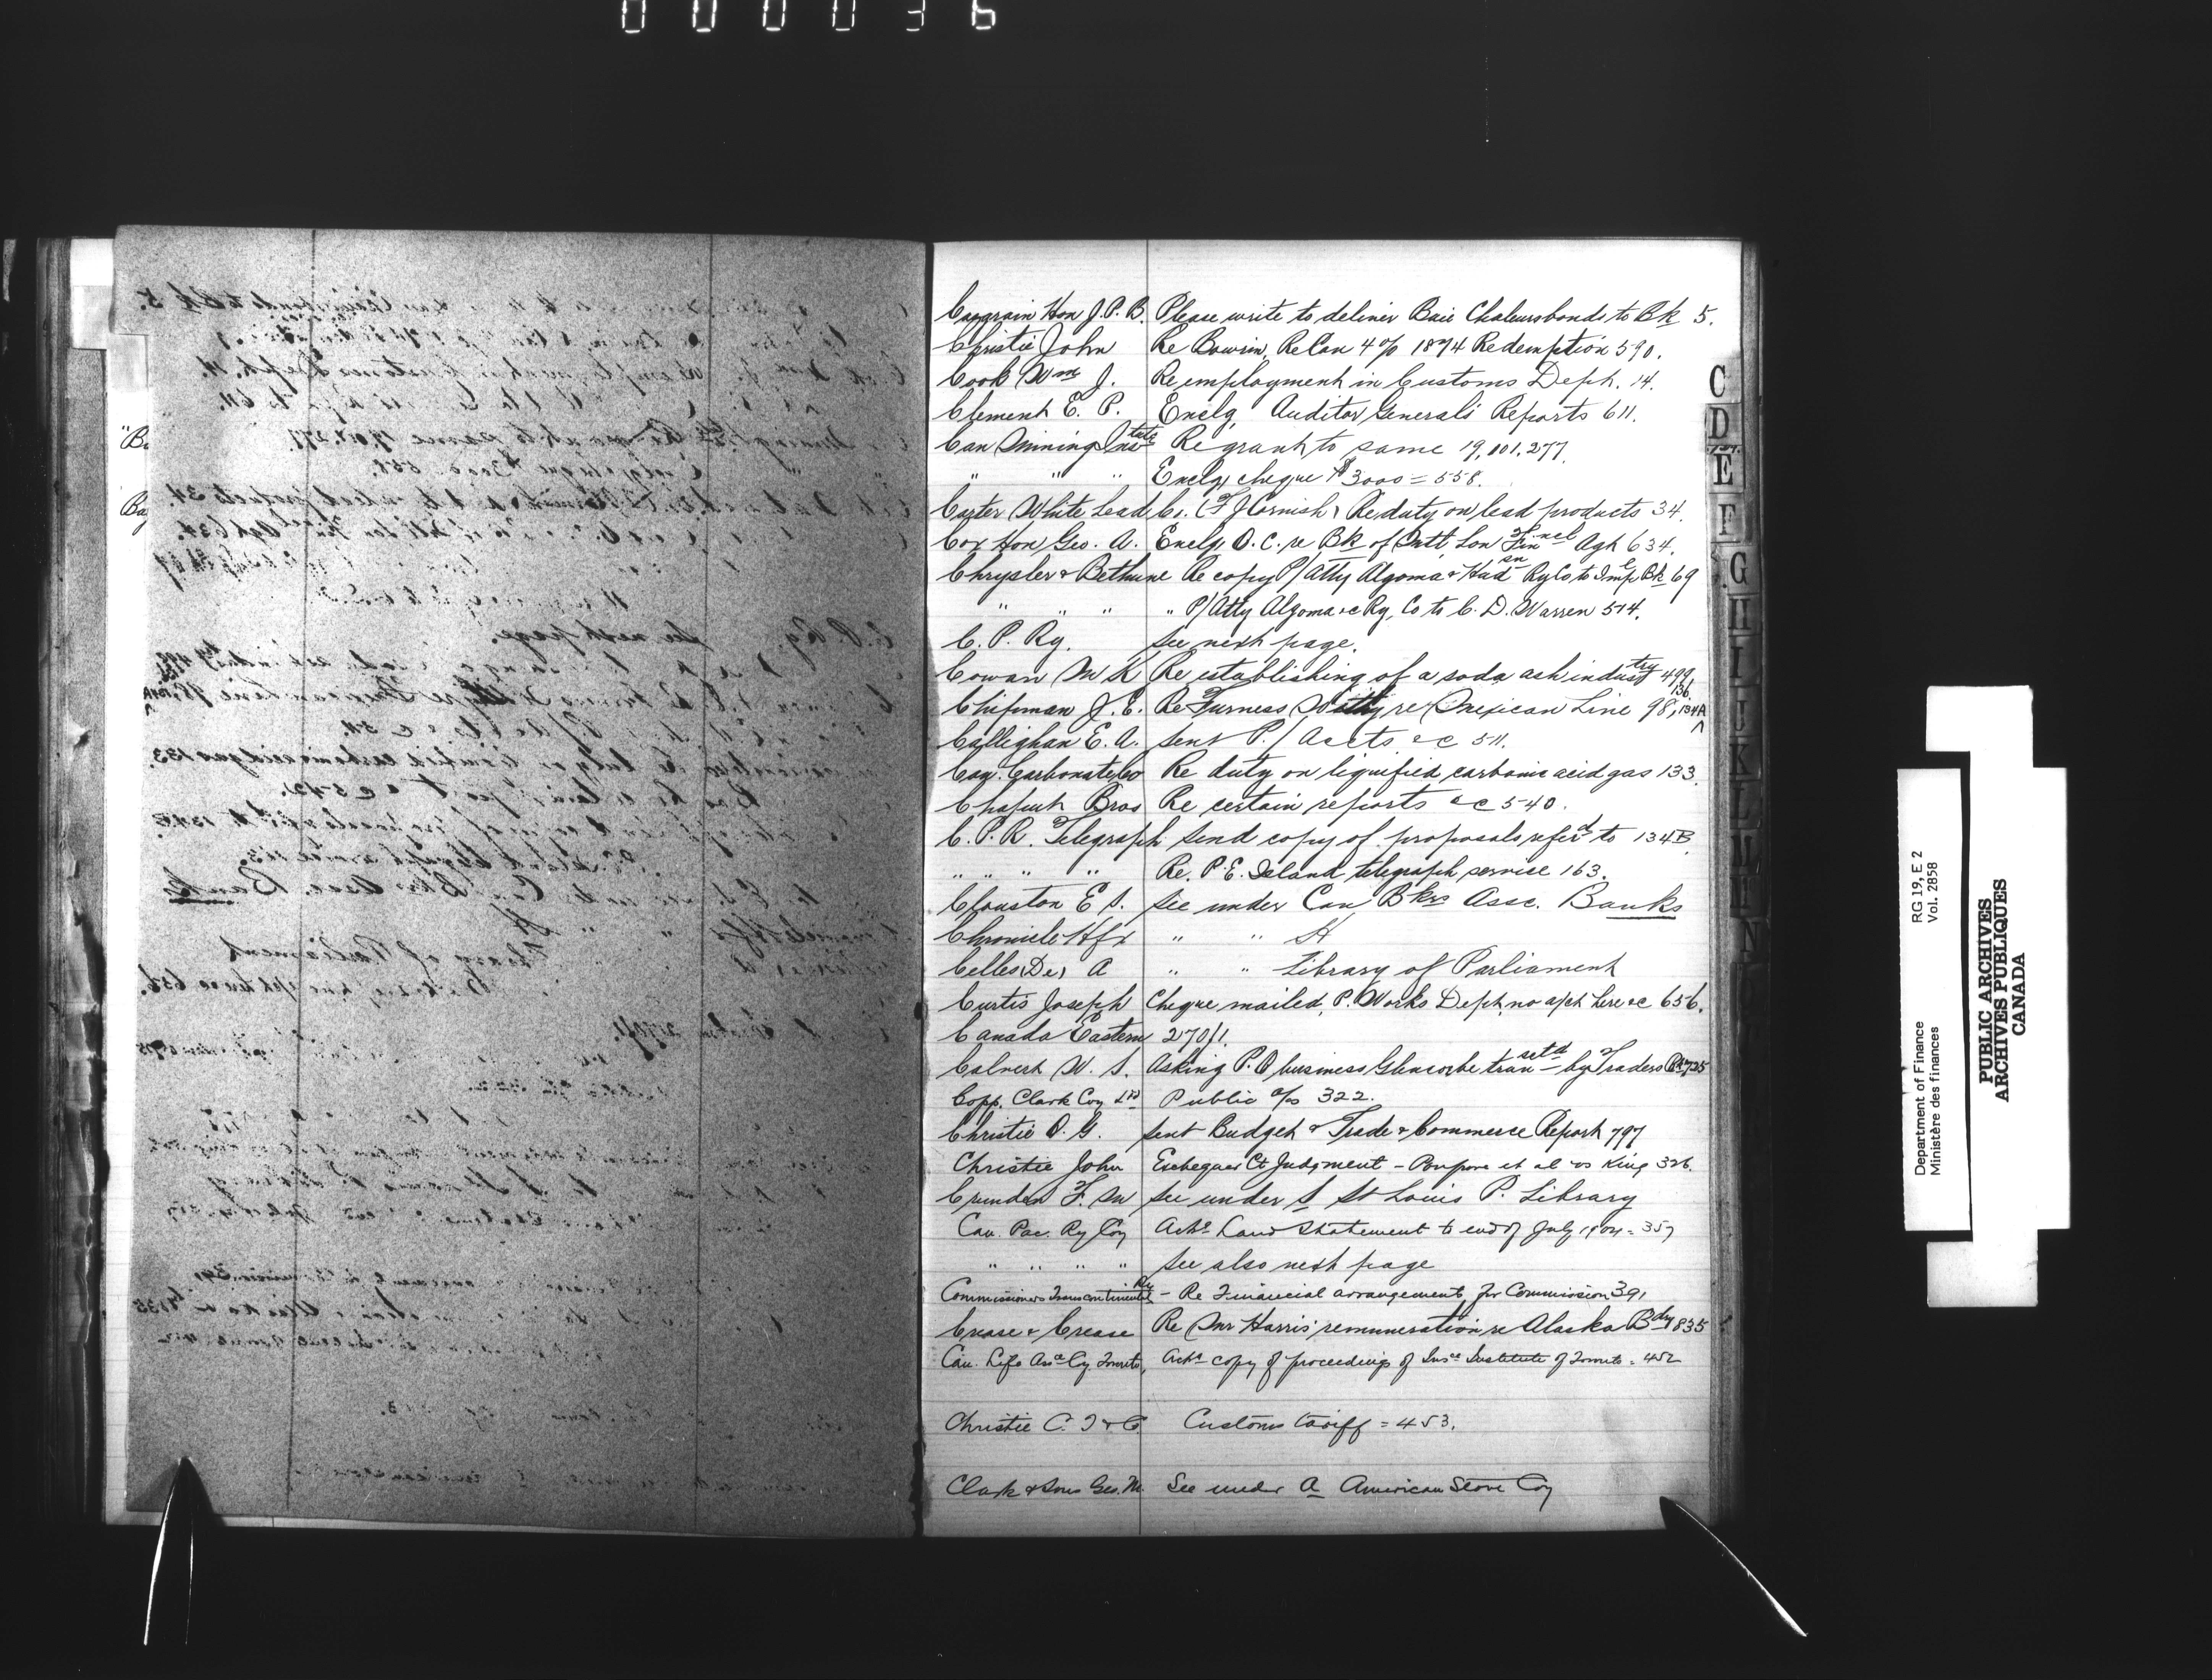 000036
Casgrain Hon J. P. B. Please write to deliver Baie Chaleurs bonds to Bk 5.
Christie John Re Bowrin, Re Can 4% 1874 Redemption 590.
Cook Wm J. Re employment in Customs Dept. 14.
Clement E. P. Enclg Auditor Generals Reports 611.
Can Mining Instute Re grant to same 19, 101, 277.
" " " Enclg cheque $3000 = 558.
Carter White Lead Co. (F J Cornish) Re duty on lead products 34.
Cox Hon Geo. A. Enclg O. C. re Bk of Montl Lon Finel Agt 634.
Chrysler & Bethune Re copy P/Atty Algoma & Hudsn Ry Co to Imple Bk 69
" " " " P/Atty Algoma &c Ry. Co to C. D. Warren 574.
C. P. Ry. See next page.
Cowan M K Re establishing of a soda ash industry 499.
Chipman J. E. Re Furness Withy re Mexican Line 98, 134A 136.
Calleghan E. A. Sent P. / Accts &c 511.
Can. Carbonate Co Re duty on liquified carbonic acid gas 133.
Chaput Bros Re certain reports &c 540.
C. P. R. Telegraph Send copy of proposals referd to 134B.
" " " " Re. P. E. Island telegraph service 163.
Clouston E S. See under Can Bkrs Assc. Banks
Chronicle Hfx " " H
Celles (De) A " " Library of Parliament
Curtis Joseph Cheque mailed, P. Works Dept, no apt here &c 656.
Canada Eastern 270/1.
Calvert W. S. Asking P. O business Glencoe be transactd by Traders Bk 725
Copp. Clark Coy Ltd Public a/cs 322.
Christie D. G. Sent Budget & Trade & Commerce Report 797
Christie John Exchequer Ct Judgment - Poupore et al vs King 326.
Crunden F. M See under S St Louis P. Library
Can. Pac. Ry Coy Ackg Land Statement to end of July 1904 = 357
" " " " See also next page
Commissioners Transcontinental Ry - Re Financial arrangements for Commission 391
Crease & Crease Re Mr Harris' remuneration re Alaska Bdry 835
Can. Life Asce Cy Toronto, Ackg copy of proceedings of Insce Institute of Toronto = 452
Christie C. T & C. Customs tariff = 453.
Clark & Sons Geo. M. See under A American Stove Coy
C
D
E
F
G
H
I
J
K
L
M
N
Department of Finance RG 19, E 2
Ministère des finances Vol. 2858
PUBLIC ARCHIVES
ARCHIVES PUBLIQUES
CANADA